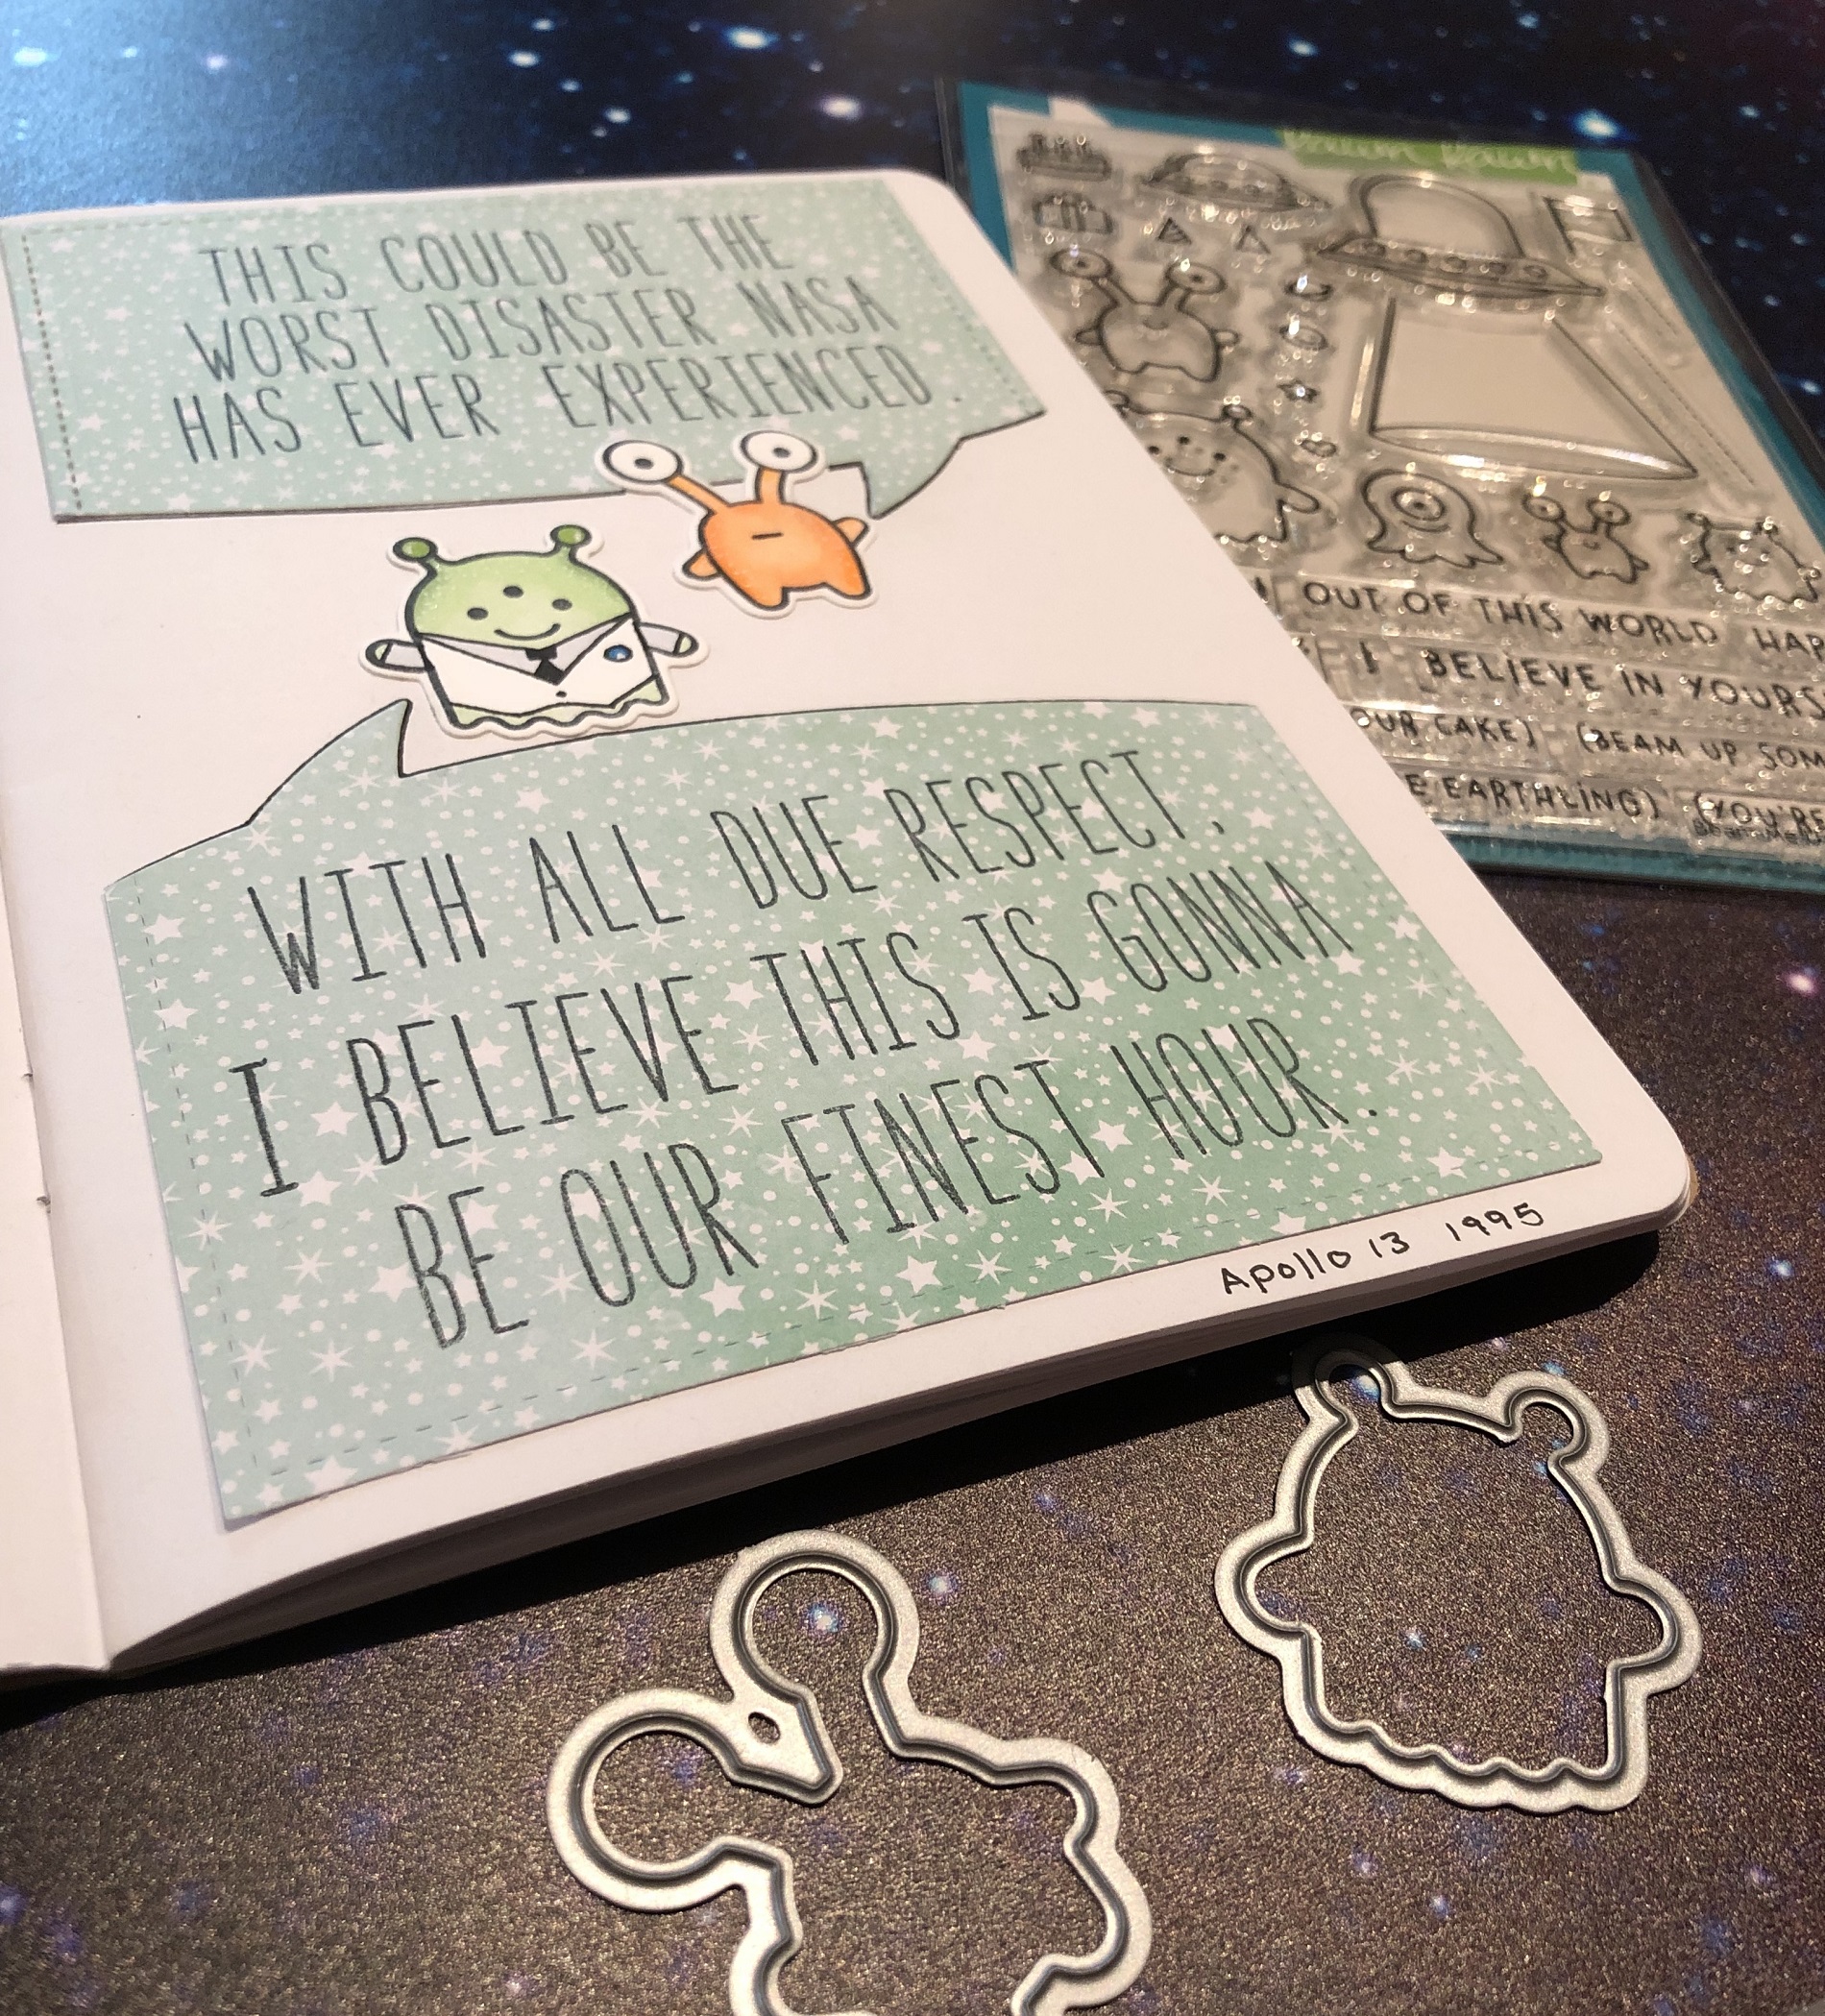 THIS COULD BE THE
WORST DISASTER NASA
HAS EVER EXPERIENCED.
WITH ALL DUE RESPECT,
I BELIEVE THIS IS GONNA
BE OUR FINEST HOUR.
Apollo 13 1995
Lawn Fawn
OUT OF THIS WORLD HAP
I BELIEVE IN YOURS
OUR CAKE) (BEAM UP SOM
E EARTHLING) (YOU'RE